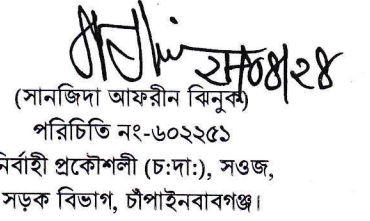 ২৮/০৪/২৪
(সানজিদা আফরীন ঝিনুক)
পরিচিতি নং-৬০২২৫১
নির্বাহী প্রকৌশলী (চ:দা:), সওজ,
সড়ক বিভাগ, চাঁপাইনবাবগঞ্জ।